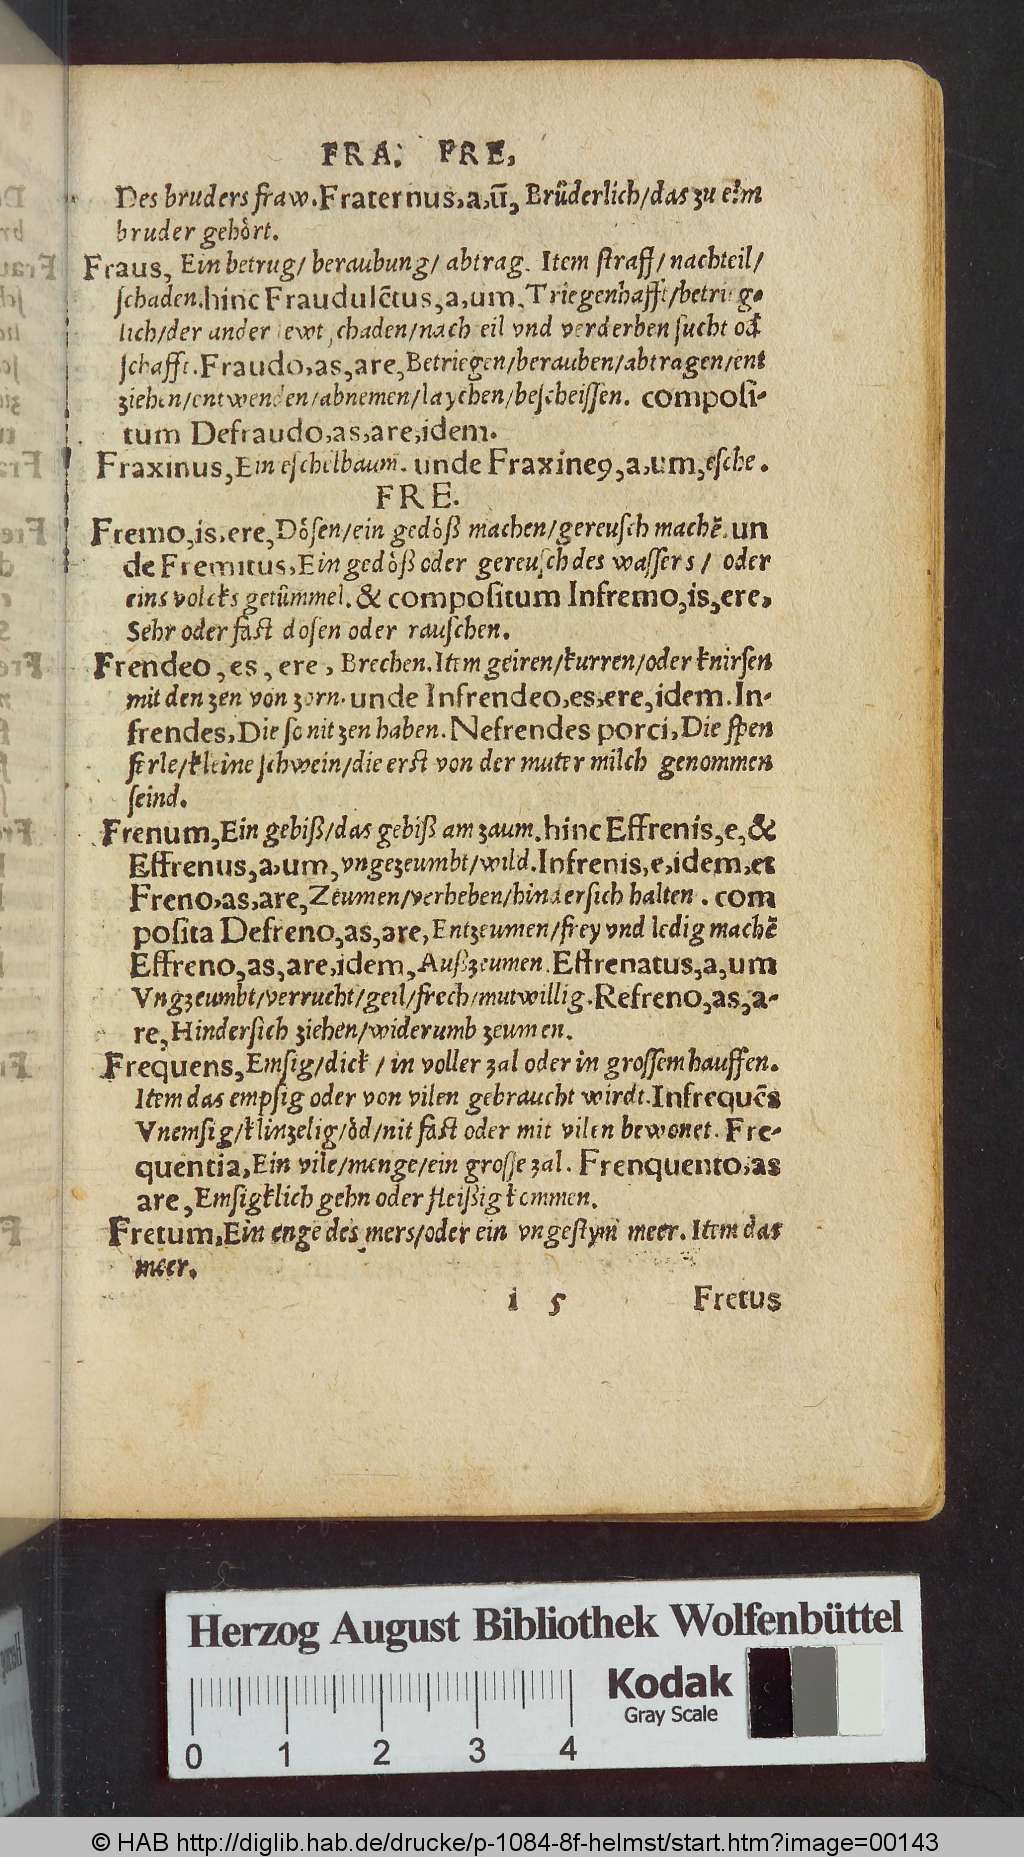 FRA. FRE.
Des bruders fraw. Fraternus, a, ũ, Bruͤderlich/das zu eim
bruder gehoͤrt.
Fraus, Ein betrug/ beraubung/ abtrag. Item straff/ nachteil/
schaden. hinc Fraudulẽtus, a, um, Triegenhafft/betrieg-
lich/der ander schaden/nachteil vnd verderben sucht oď
schafft. Fraudo, as, are, Betriegen/berauben/abtragen/ent
ziehen/entwenden/abnemen/laychen/bescheissen. composi-
tum Defraudo, as, are, idem.
Fraxinus, Ein eschelbaum. unde Fraxineꝰ, a, um, esche.
FRE.
Fremo, is, ere, Doͤsen/ein gedoͤß machen/gereusch machẽ. un
de Fremitus, Ein gedoͤß oder gereusch des wassers/ oder
eins volcks getuͤmmel. & compositum Infremo, is, ere,
Sehr oder fast dosen oder rauschen.
Frendeo, es, ere, Brechen. Item geiren/kurren/oder knirsen
mit den zen von zorn. unde Infrendeo, es, ere, idem. In-
frendes, Die so nit zen haben. Nefrendes porci, Die spen
ferle/kleine schwein/die erst von der muter milch genommen
seind.
Frenum, Ein gebiß/das gebiß am zaum. hinc Effrenis, e, &
Effrenus, a, um, vngezeumbt/wild. Infrenis, e, idem, et
Freno, as, are, Zeumen/verheben/hindersich halten. com
posita Defreno, as, are, Entzeumen/frey vnd ledig machẽ
Effreno, as, are, idem, Außzeumen. Effrenatus, a, um
Vngzeumbt/verrucht/geil/frech/mutwillig. Refreno, as, a-
re, Hindersich ziehen/widerumb zeumen.
Frequens, Emsig/dick/ in voller zal oder in grossem hauffen.
Item das empsig oder von vilen gebraucht wirdt. Infrequẽs
Vnemsig/klinzelig/oͤd/nit fast oder mit vilen bewonet. Fre-
quentia, Ein vile/menge/ein grosse zal. Frenquento, as
are, Emsigklich gehn oder fleißig kommen.
Fretum, Ein enge des mers/oder ein vngestym meer. Item das
meer.
i 5 Fretus
Herzog August Bibliothek Wolfenbüttel
Kodak
Gray Scale
0 1 2 3 4
© HAB http://diglib.hab.de/drucke/p-1084-8f-helmst/start.htm?image=00143